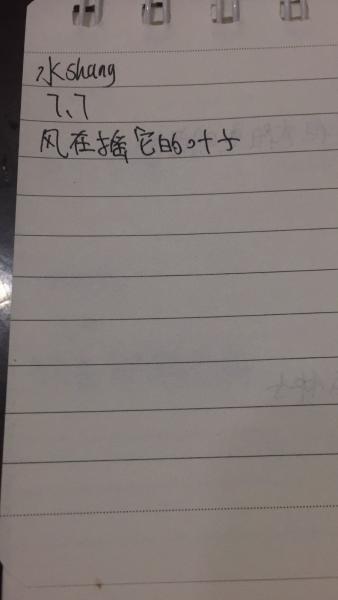 水shang
7、7
风在摇它的叶子